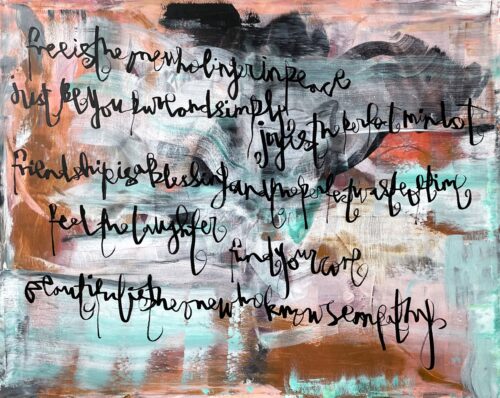 free is the one who linger in peace
just be you and simply
joy is th perfect
friendship is a blessing and the perfect waste of time
feel the laughter find your
beautiful is the one who knows empathy